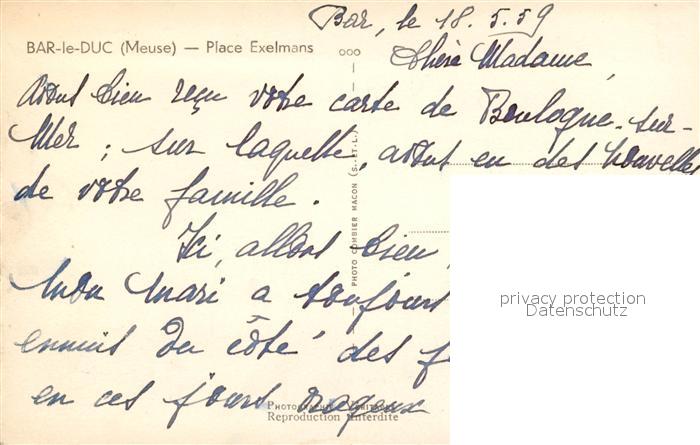 Bar, le 18.5.59
BAR-le-DUC (Meuse) — Place Exelmans
Chère Madame,
Avons bien reçu votre carte de Boulogne-sur-
Mer ; sur laquelle, avons eu des nouvelles
de votre famille.
Ici, allons bien,
mon mari a toujours
ennuis du côté des
en ces jours orageux
PHOTO COMBIER MACON (S.-ET-L.)
privacy protection
Datenschutz
Reproduction Interdite